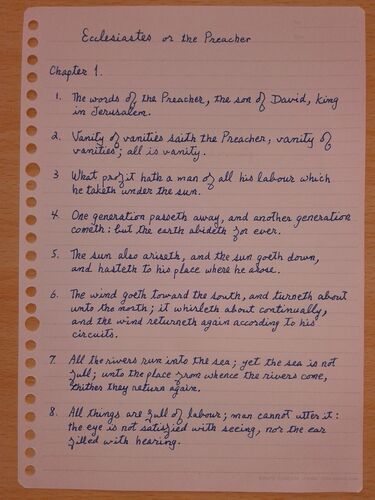 Ecclesiastes or the Preacher
Chapter 1.
1. The words of the Preacher, the son of David, king
in Jerusalem.
2. Vanity of vanities saith the Preacher, vanity of
vanities; all is vanity.
3 What profit hath a man of all his labour which
he taketh under the sun.
4. One generation passeth away, and another generation
cometh: but the earth abideth for ever.
5. The sun also ariseth, and the sun goeth down,
and hasteth to his place where he arose.
6. The wind goeth toward the south, and turneth about
unto the north; it whirleth about continually,
and the wind returneth again according to his
circuits.
7. All the rivers run into the sea; yet the sea is not
full; unto the place from whence the rivers come,
thither they return again.
8. All things are full of labour; man cannot utter it:
the eye is not satisfied with seeing, nor the ear
filled with hearing.